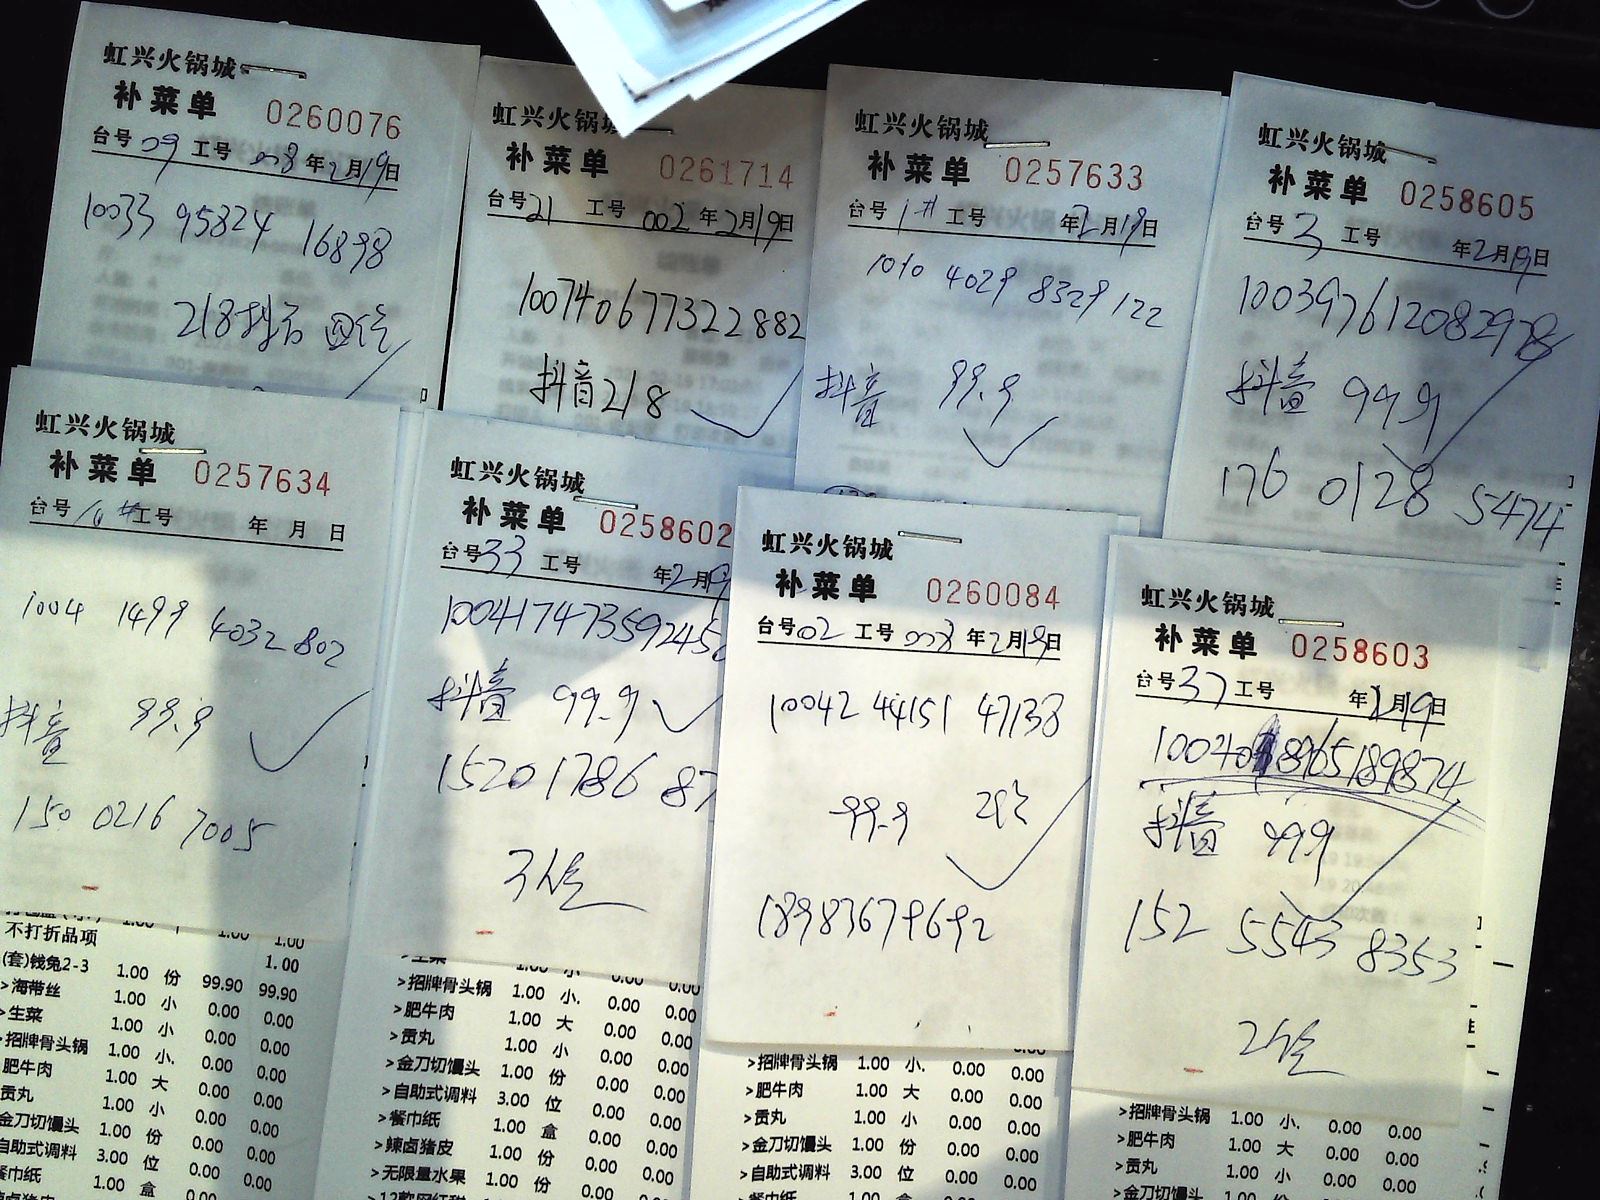 虹兴火锅城
补菜单 0260076
台号 09 工号 008 年 2月19日
10033 95824 16898
218抖音 四位
虹兴火锅城
补菜单 0261714
台号 21 工号 002 年 2月19日
10074067732 2882
抖音218
虹兴火锅城
补菜单 0257633
台号 1# 工号 年 2月19日
1010 4029 8329 122
抖音 99.9
虹兴火锅城
补菜单 0258605
台号 3 工号 年 2月19日
抖音 99.9
176 0128 5474
虹兴火锅城
补菜单 0257634
台号 工号 年 月 日
1004 1499 4032 802
抖音 99.9
150 0216 7005
虹兴火锅城
补菜单 0258602
台号 33 工号 年 2月19
100417473592456
抖音 99.9
1520178687
虹兴火锅城
补菜单 0260084
台号 02 工号 008 年 2月19日
10042 44151 47138
99.9
18983679692
虹兴火锅城
补菜单 0258603
台号 37 工号 年 2月19日
抖音 99.9
152 5543 8353
1.00 1.00 1.00
不打折品项 1.00
(套)钱兔2-3 1.00 份 99.90 99.90
>海带丝 1.00 小 0.00 0.00
>生菜 1.00 小 0.00 0.00
>招牌骨头锅 1.00 小. 0.00 0.00
肥牛肉 1.00 大 0.00 0.00
贡丸 1.00 小 0.00 0.00
金刀切馒头 1.00 份 0.00 0.00
自助式调料 3.00 位 0.00 0.00
餐巾纸 1.00 盒 0.00 0.00
>生菜 1.00 小 0.00 0.00
>招牌骨头锅 1.00 小. 0.00 0.00
>肥牛肉 1.00 大 0.00 0.00
>贡丸 1.00 小 0.00 0.00
>金刀切馒头 1.00 份 0.00 0.00
>自助式调料 3.00 位 0.00 0.00
>餐巾纸 1.00 盒 0.00 0.00
>辣卤猪皮 1.00 份 0.00 0.00
>无限量水果 1.00 份 0.00 0.00
>招牌骨头锅 1.00 小. 0.00 0.00
>肥牛肉 1.00 大 0.00 0.00
>贡丸 1.00 小 0.00 0.00
>金刀切馒头 1.00 份 0.00 0.00
>自助式调料 3.00 位 0.00 0.00
>餐巾纸 1.00 盒 0.00 0.00
>招牌骨头锅 1.00 小. 0.00 0.00
>肥牛肉 1.00 大 0.00 0.00
>贡丸 1.00 小 0.00 0.00
>金刀切馒头 1.00 份 0.00 0.00